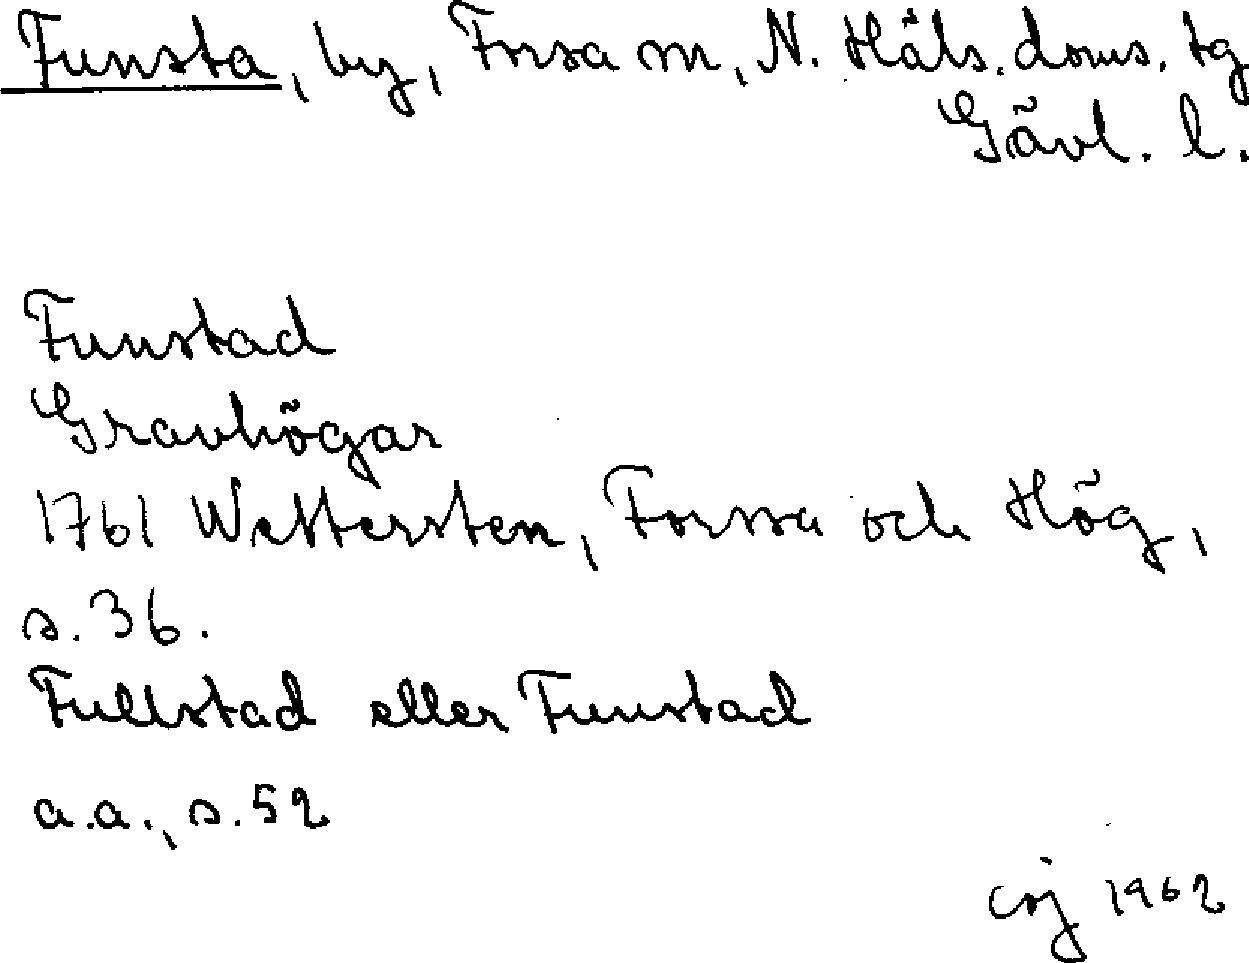 Funsta, by, Forsa sn, N. Häls. doms. tg
Gävl. l.
Funstad
Gravhögar
1761 Wettersten, Forssa och Hög,
s. 36.
Fullstad eller Funstad
a.a., s. 52
1962